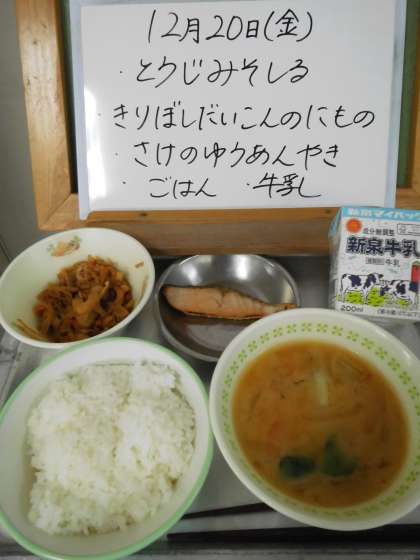 12月20日(金)
・とりじみそしる
・きりぼしだいこんのにもの
・さけのゆうあんやき
・ごはん ・牛乳
成分無調整
新泉牛乳
200ml